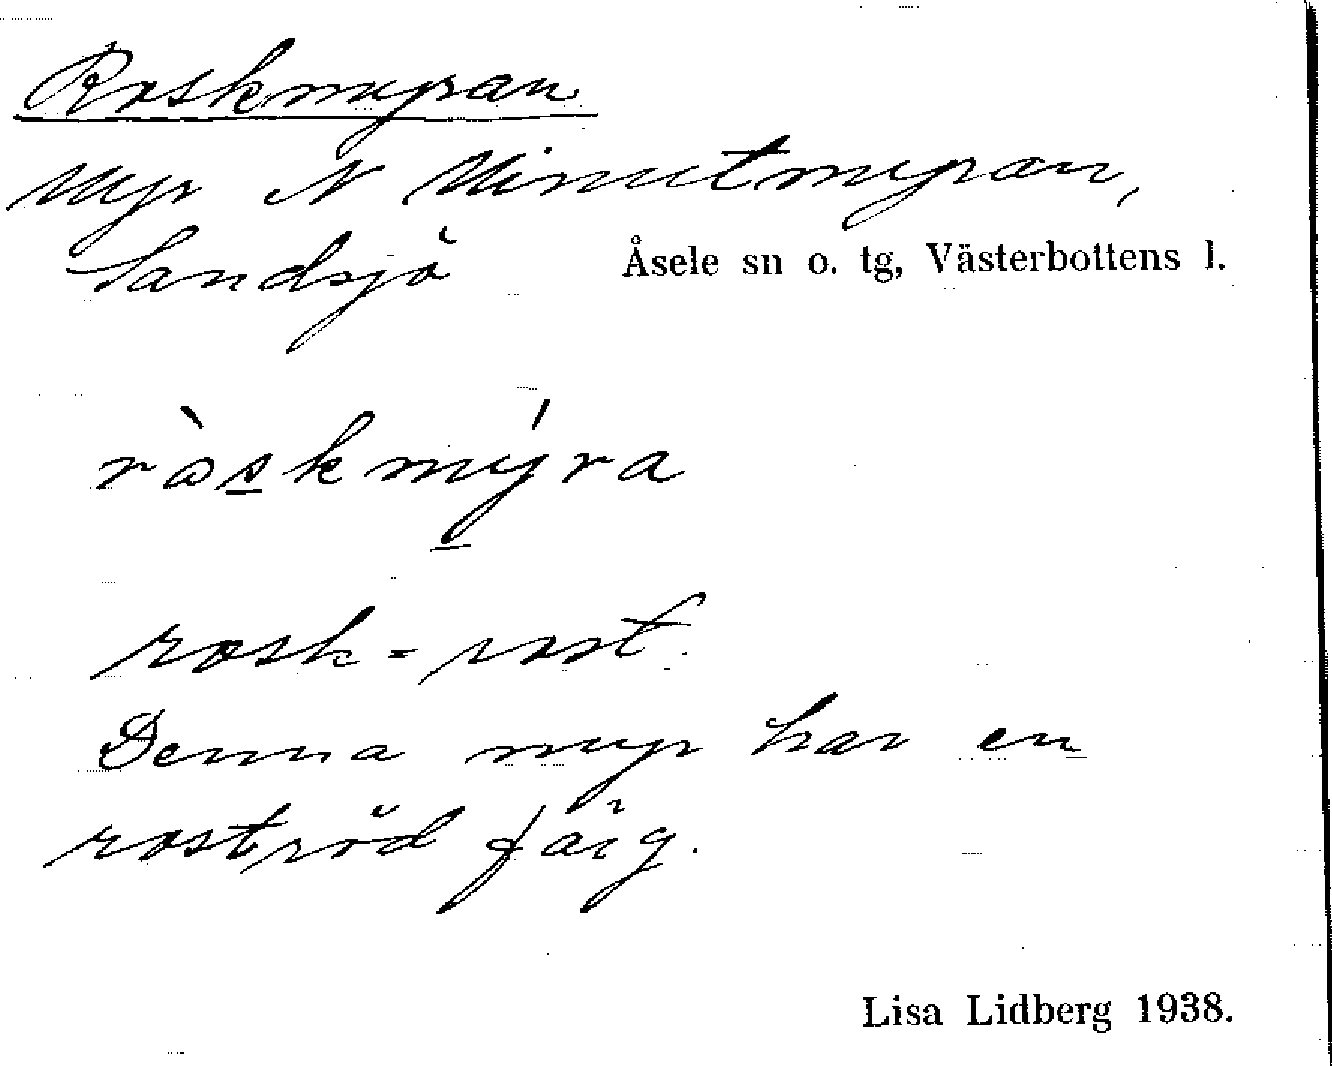 Roskmyran
Myr N Vinmetmyran,
Sandsjö Åsele sn o. tg, Västerbottens l.
ròskmýra
rosk = rost.
Denna myr har en
roströd färg.
Lisa Lidberg 1938.